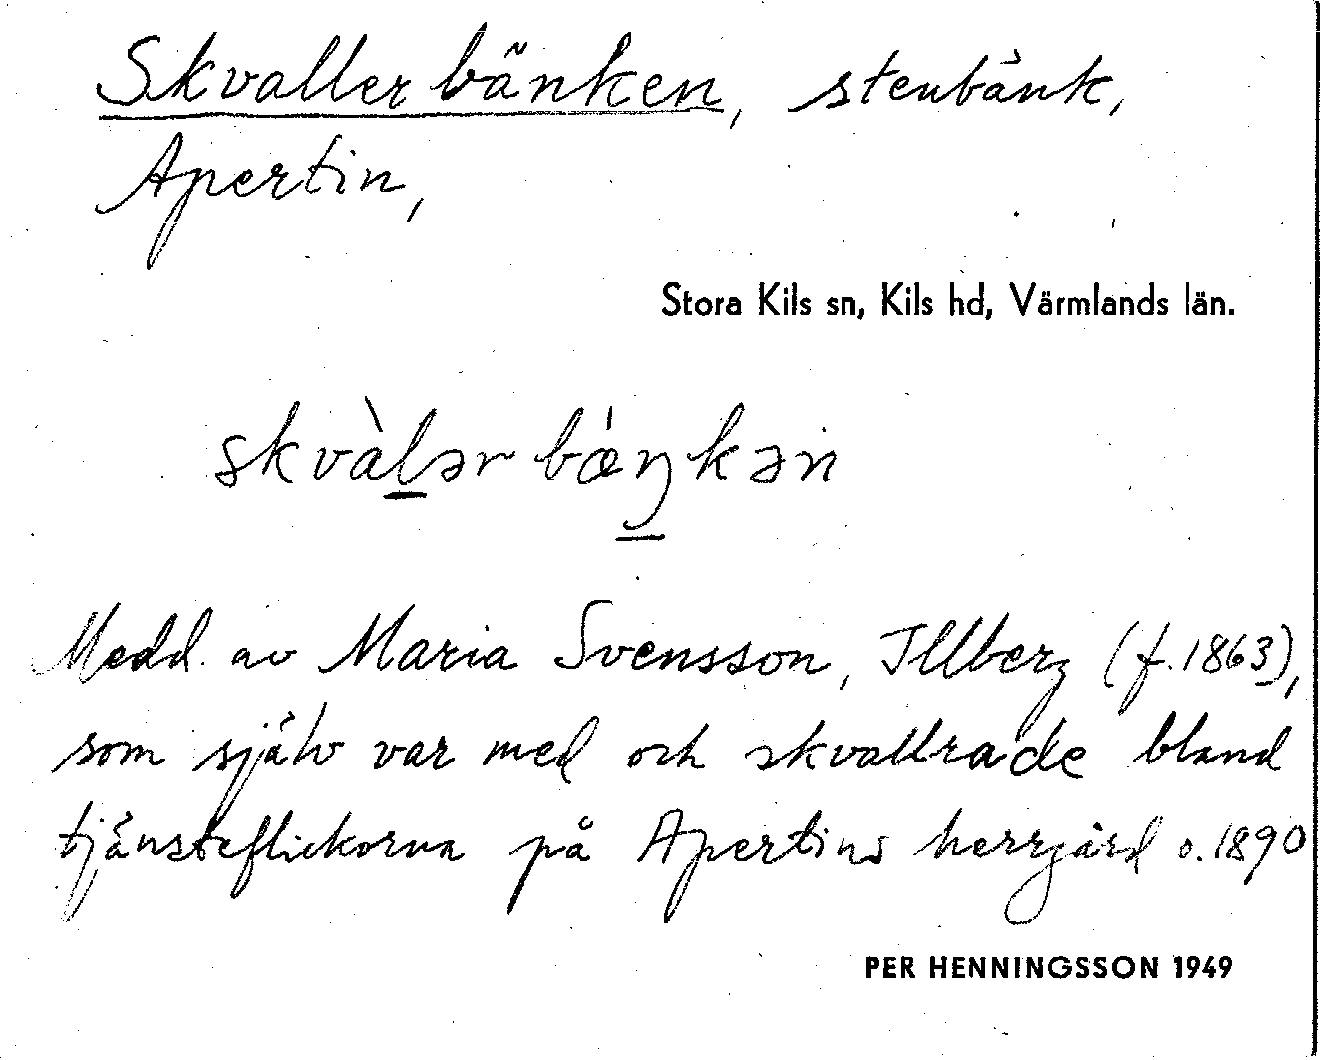 Skvallerbänken, stenbänk,
Apertin,
Stora Kils sn, Kils hd, Värmlands län.
skvàl̲ər bǽŋ̲kən
Medd. av Maria Svensson, Illberg (f. 1863),
som själv var med och skvallrade bland
tjänsteflickorna på Apertins herrgård o. 1890
PER HENNINGSSON 1949